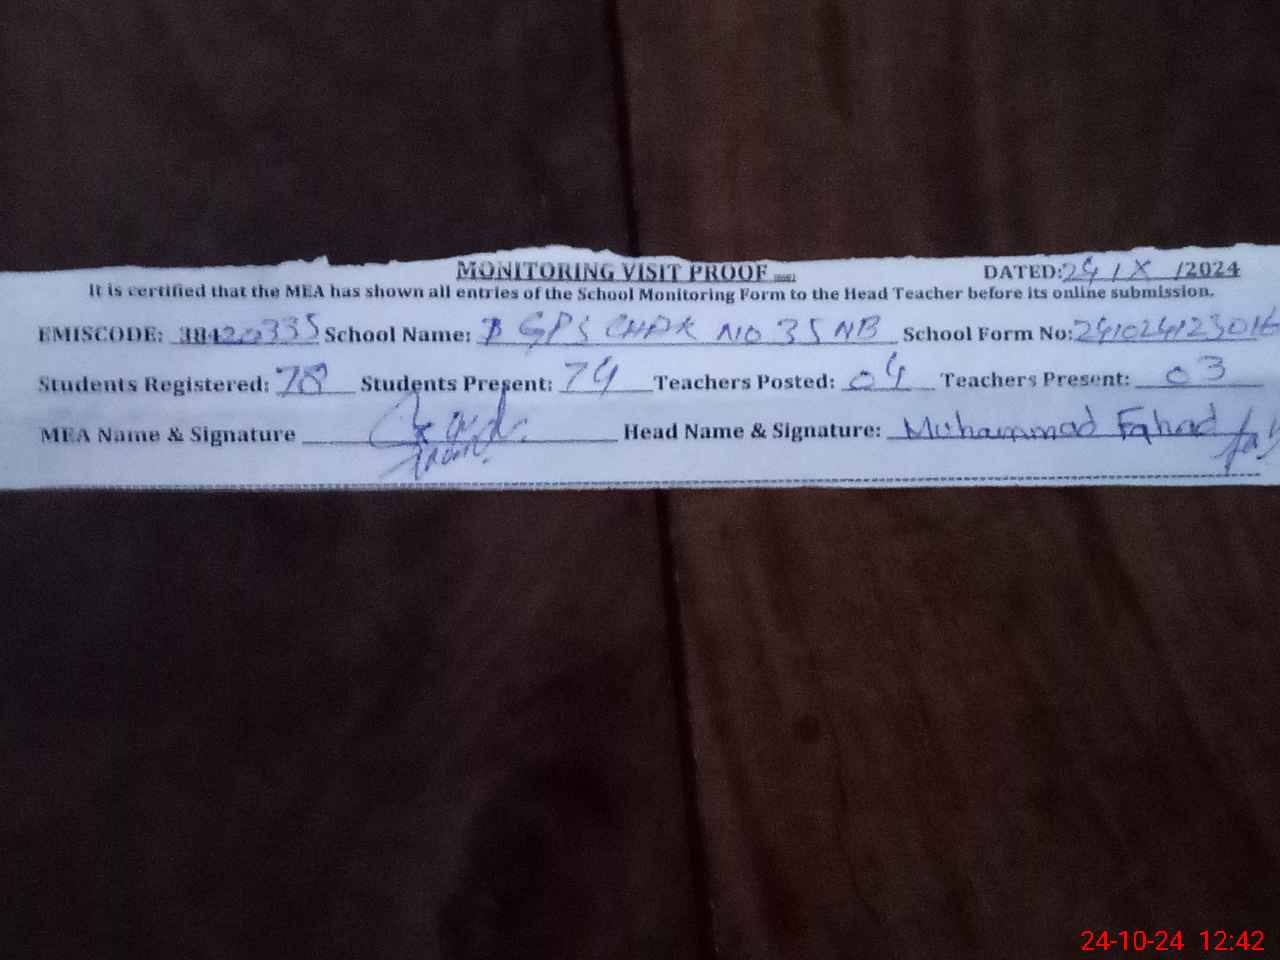 MONITORING VISIT PROOF DATED: 24/X/2024
It is certified that the MEA has shown all entries of the School Monitoring Form to the Head Teacher before its online submission.
EMISCODE: 38420335 School Name: GPS CHAK NO 35 NB School Form No: 241024123016
Students Registered: 78 Students Present: 74 Teachers Posted: 04 Teachers Present: 03
MEA Name & Signature Head Name & Signature: Muhammad Fahad
24-10-24 12:42